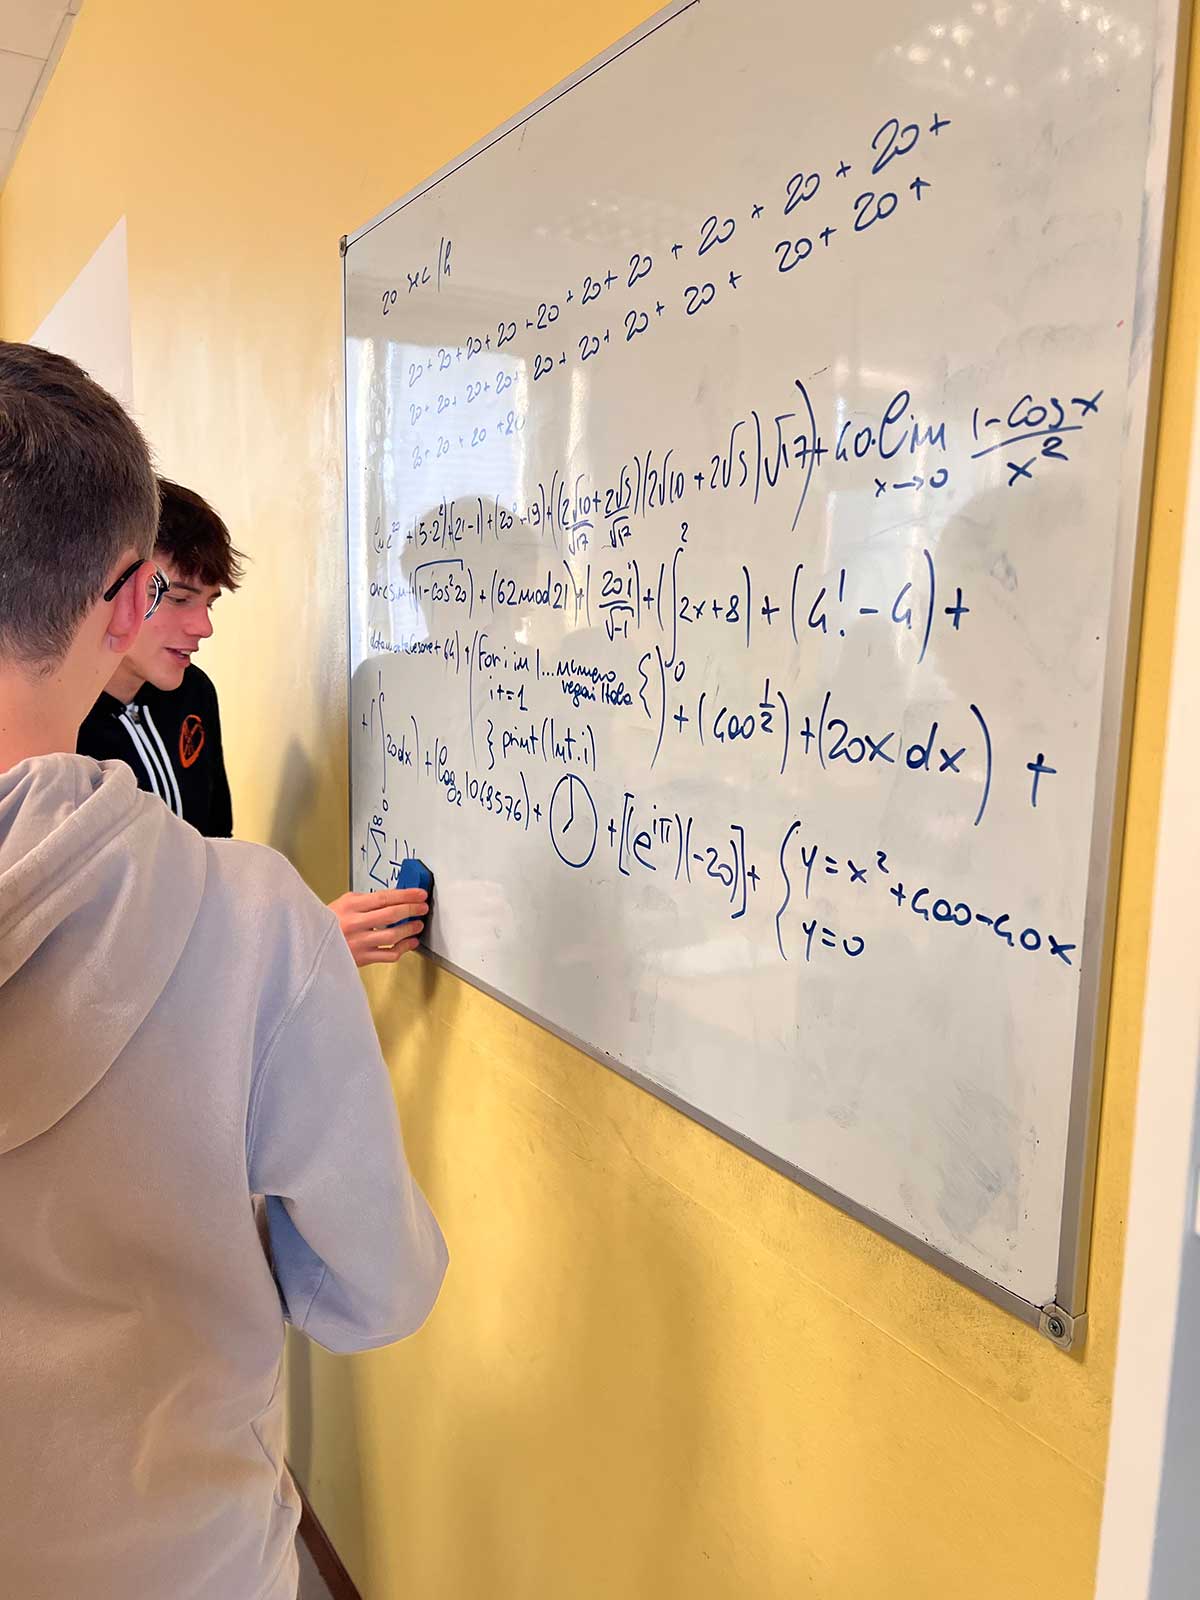 20 sec/h
20+20+20+20+20+20+20+20+20+20+
20+20+20+20+20+20+20+20+20+20+
20+20+20+20
ln e²⁰ + (5·2²) + (21-1) + (20⁰+19) + ((2√10/√17 + 2√5/√17)(2√10 + 2√5)√17) + 40·lim x→0 (1-cos x)/x²
arcsin(√1-cos²20) + (62mod21) + (20i/√-1) + (∫₀² 2x+8) + (4!-4) +
(For i in 1...numero regali Itala { i+=1 } print(int.i)) + (400^½) + (20x dx) +
+ (∫₀¹ 20dx) + (log₂ 1048576) + + [(e^iπ)(-20)] + { y=x²+400-40x
y=0
+ (∑ 1/